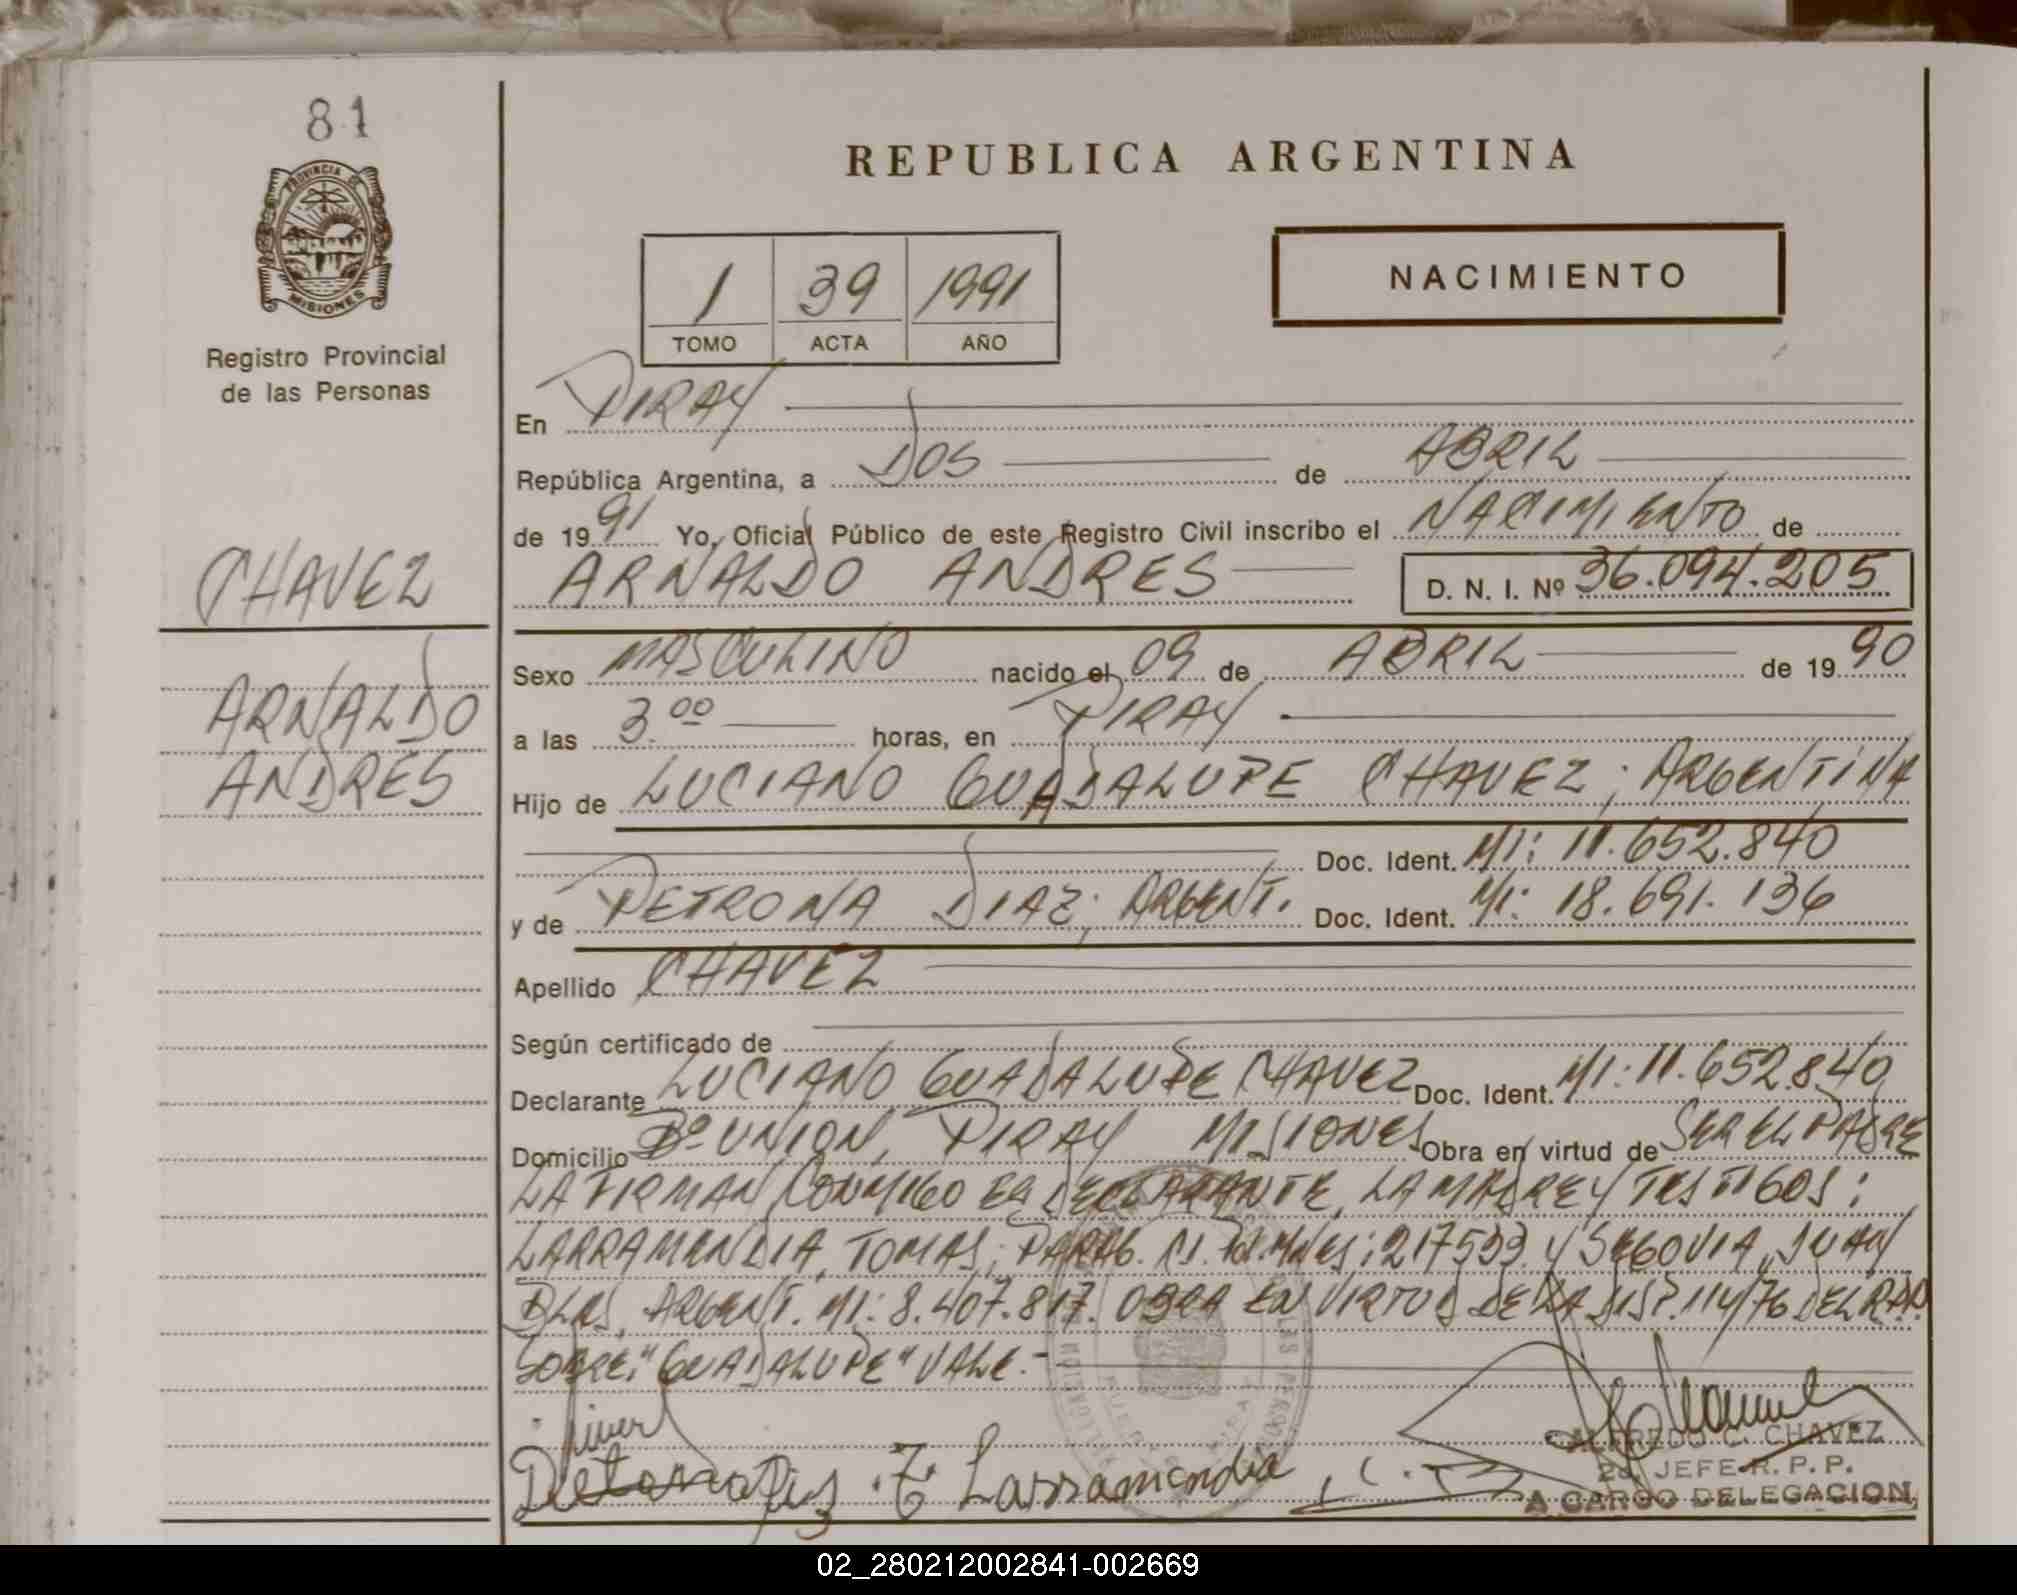 81
PROVINCIA DE
MISIONES
Registro Provincial
de las Personas
CHAVEZ
ARNALDO
ANDRES
REPUBLICA ARGENTINA
1 39 1991
TOMO ACTA AÑO
NACIMIENTO
En PIRAY
República Argentina, a DOS de ABRIL
de 1991 Yo, Oficial Público de este Registro Civil inscribo el NACIMIENTO de
ARNALDO ANDRES D. N. I. Nº 36.094.205
Sexo MASCULINO nacido el 09 de ABRIL de 1990
a las 3.00 horas, en PIRAY
Hijo de LUCIANO GUADALUPE CHAVEZ; ARGENTINA
Doc. Ident. MI: 11.652.840
y de PETRONA DIAZ; ARGENT. Doc. Ident. MI: 18.691.136
Apellido CHAVEZ
Según certificado de
Declarante LUCIANO GUADALUPE CHAVEZ Doc. Ident. MI: 11.652.840
Domicilio Bº UNION, PIRAY MISIONES Obra en virtud de SER EL PADRE
LA FIRMAN CONMIGO EL DECLARANTE, LA MADRE Y TESTIGOS:
LARRAMENDIA, TOMAS; PARAG. CI. MNES: 217533 Y SEGOVIA, JUAN
BLAS, ARGENT. MI: 8.407.817. OBRA EN VIRTUD DE LA DISP. 114/76 DEL R.P.P.
SOBRE: "GUADALUPE" VALE.-
T. Larramendia
ALFREDO C. CHAVEZ
2do. JEFE R. P. P.
A CARGO DELEGACION
02_280212002841-002669